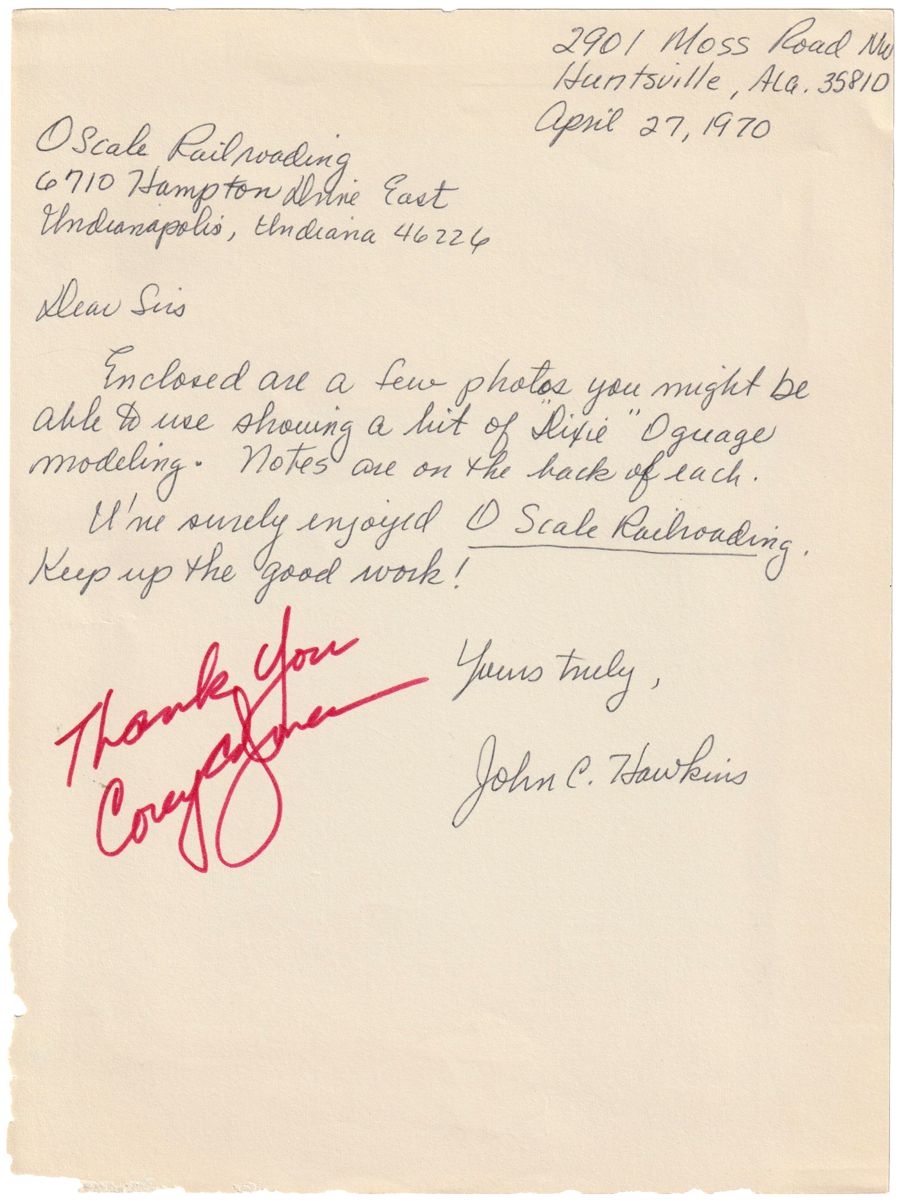 2901 Moss Road NW
Huntsville, Ala. 35810
April 27, 1970
O Scale Railroading
6710 Hampton Drive East
Indianapolis, Indiana 46226
Dear Sirs
Enclosed are a few photos you might be
able to use showing a bit of "Dixie" O guage
modeling. Notes are on the back of each.
I've surely enjoyed O Scale Railroading.
Keep up the good work!
Thank You
Corey
Yours truly,
John C. Hawkins